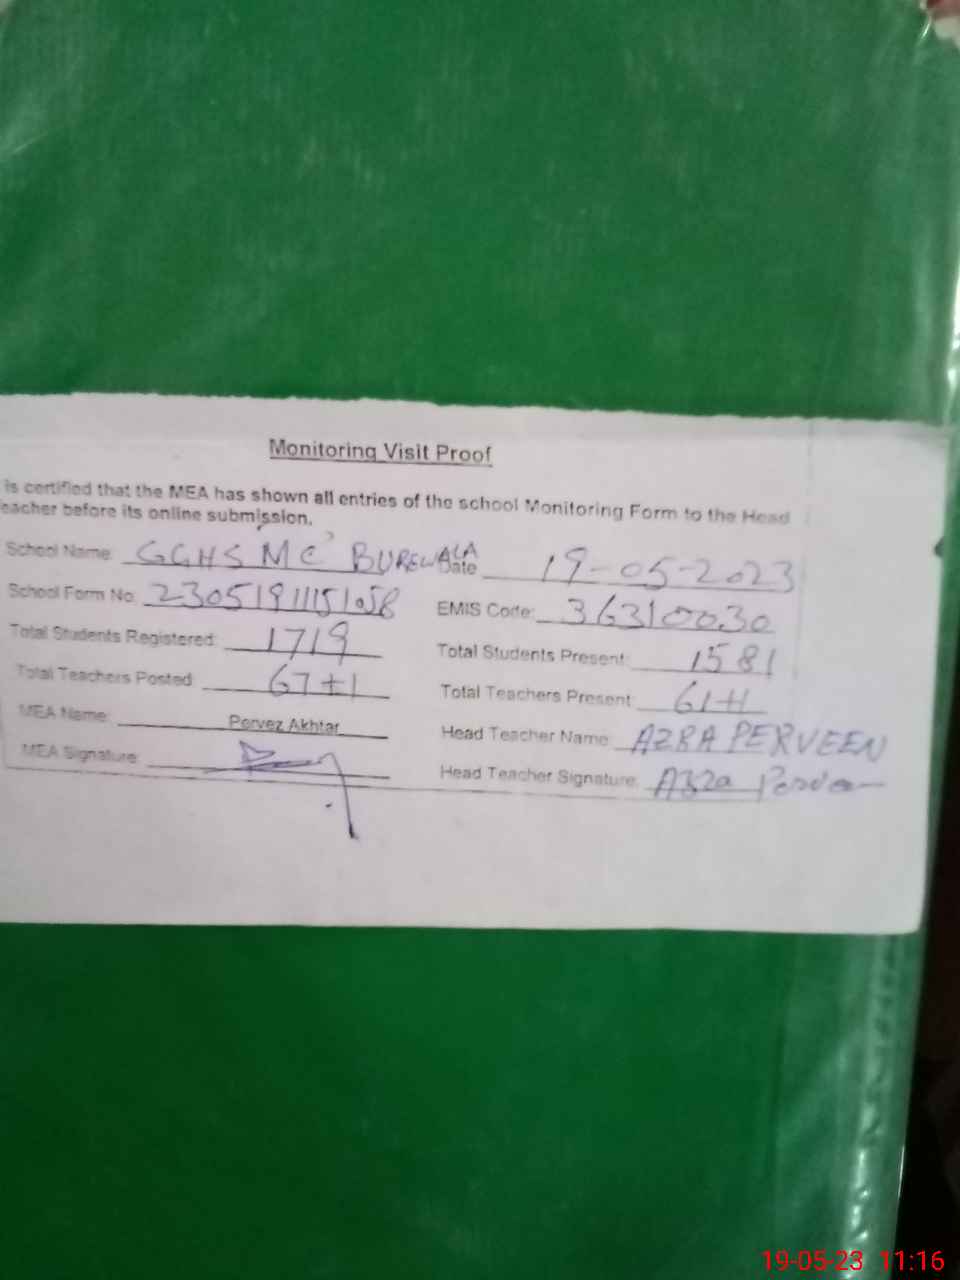 Monitoring Visit Proof
is certified that the MEA has shown all entries of the school Monitoring Form to the Head
eacher before its online submission.
School Name: GGHS MC BUREWALA Date 19-05-2023
School Form No: 23051911151058 EMIS Code: 36310030
Total Students Registered: 1719 Total Students Present: 1581
Total Teachers Posted: 67+1 Total Teachers Present: 61+1
MEA Name: Pervez Akhtar Head Teacher Name: AZRA PERVEEN
MEA Signature: Head Teacher Signature: Azra Perveen
19-05-23 11:16